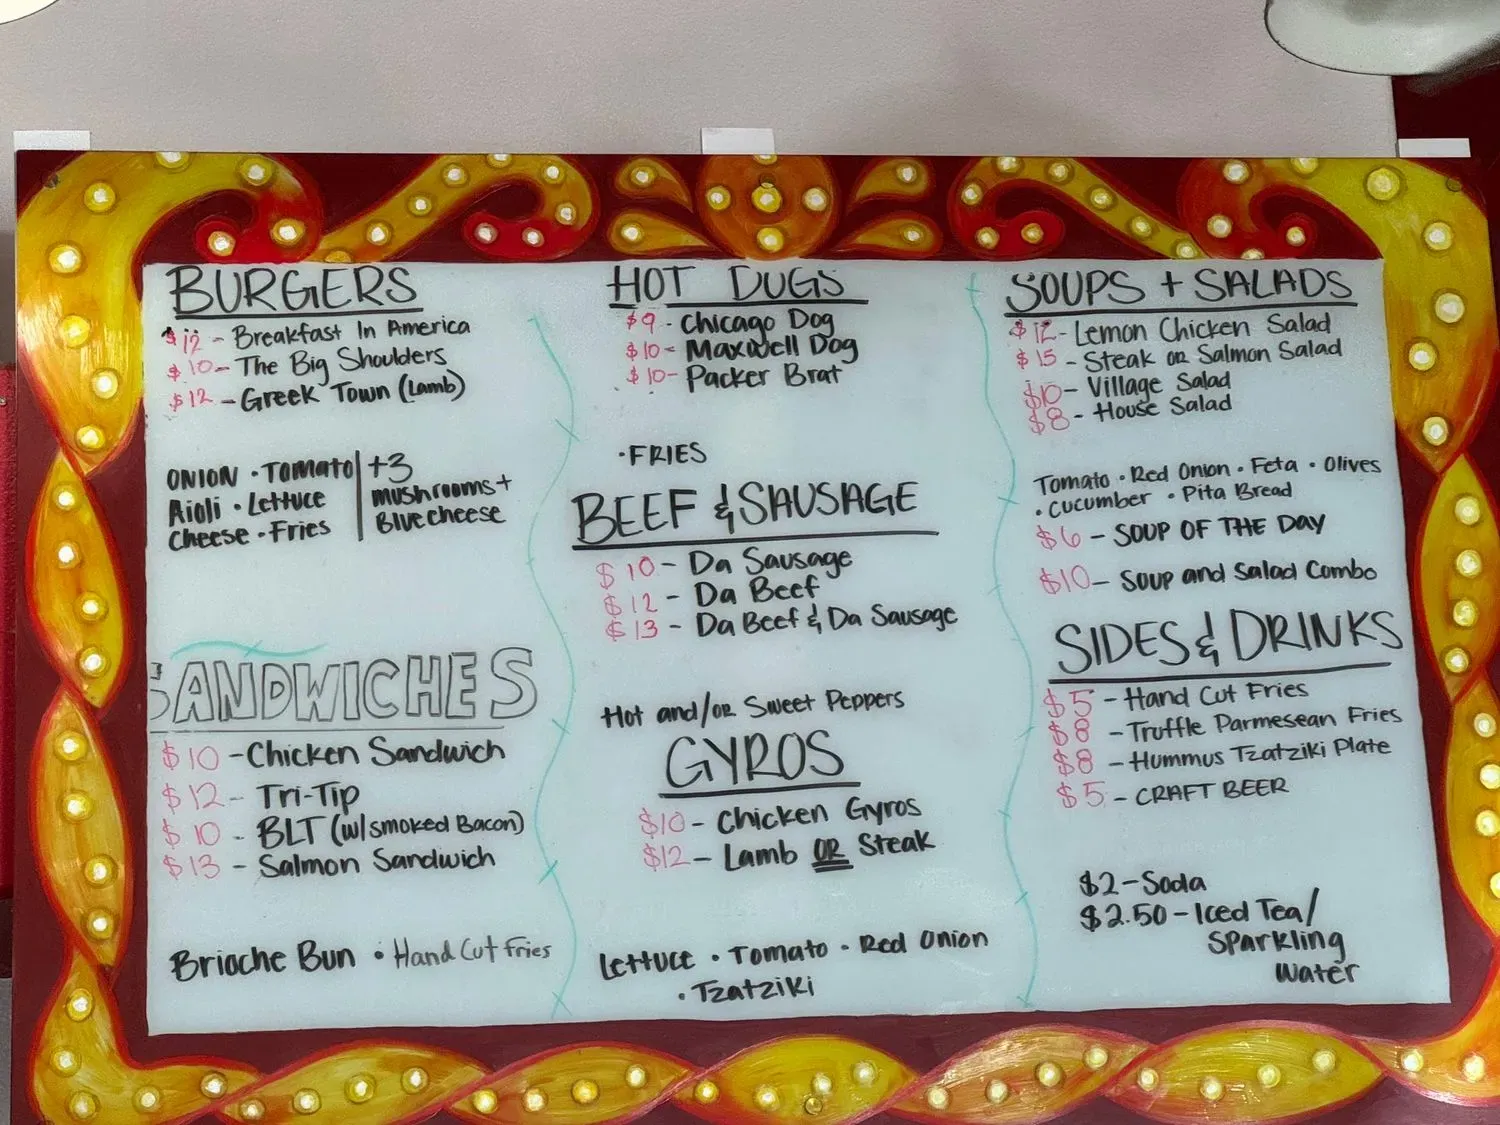 BURGERS
$12 - Breakfast In America
$10 - The Big Shoulders
$12 - Greek Town (Lamb)
ONION · Tomato | +3
Aioli · Lettuce | mushrooms +
Cheese · Fries | Bluecheese
SANDWICHES
$10 - Chicken Sandwich
$12 - Tri-Tip
$10 - BLT (w/smoked Bacon)
$13 - Salmon Sandwich
Brioche Bun · Hand Cut Fries
HOT DUGS
$9 - Chicago Dog
$10 - Maxwell Dog
$10 - Packer Brat
· FRIES
BEEF & SAUSAGE
$10 - Da Sausage
$12 - Da Beef
$13 - Da Beef & Da Sausage
Hot and/or Sweet Peppers
GYROS
$10 - Chicken Gyros
$12 - Lamb OR Steak
Lettuce · Tomato · Red Onion
· Tzatziki
SOUPS + SALADS
$12 - Lemon Chicken Salad
$15 - Steak or Salmon Salad
$10 - Village Salad
$8 - House Salad
Tomato · Red Onion · Feta · Olives
· Cucumber · Pita Bread
$6 - SOUP OF THE DAY
$10 - Soup and Salad Combo
SIDES & DRINKS
$5 - Hand Cut Fries
$8 - Truffle Parmesean Fries
$8 - Hummus Tzatziki Plate
$5 - CRAFT BEER
$2 - Soda
$2.50 - Iced Tea/
Sparkling
Water